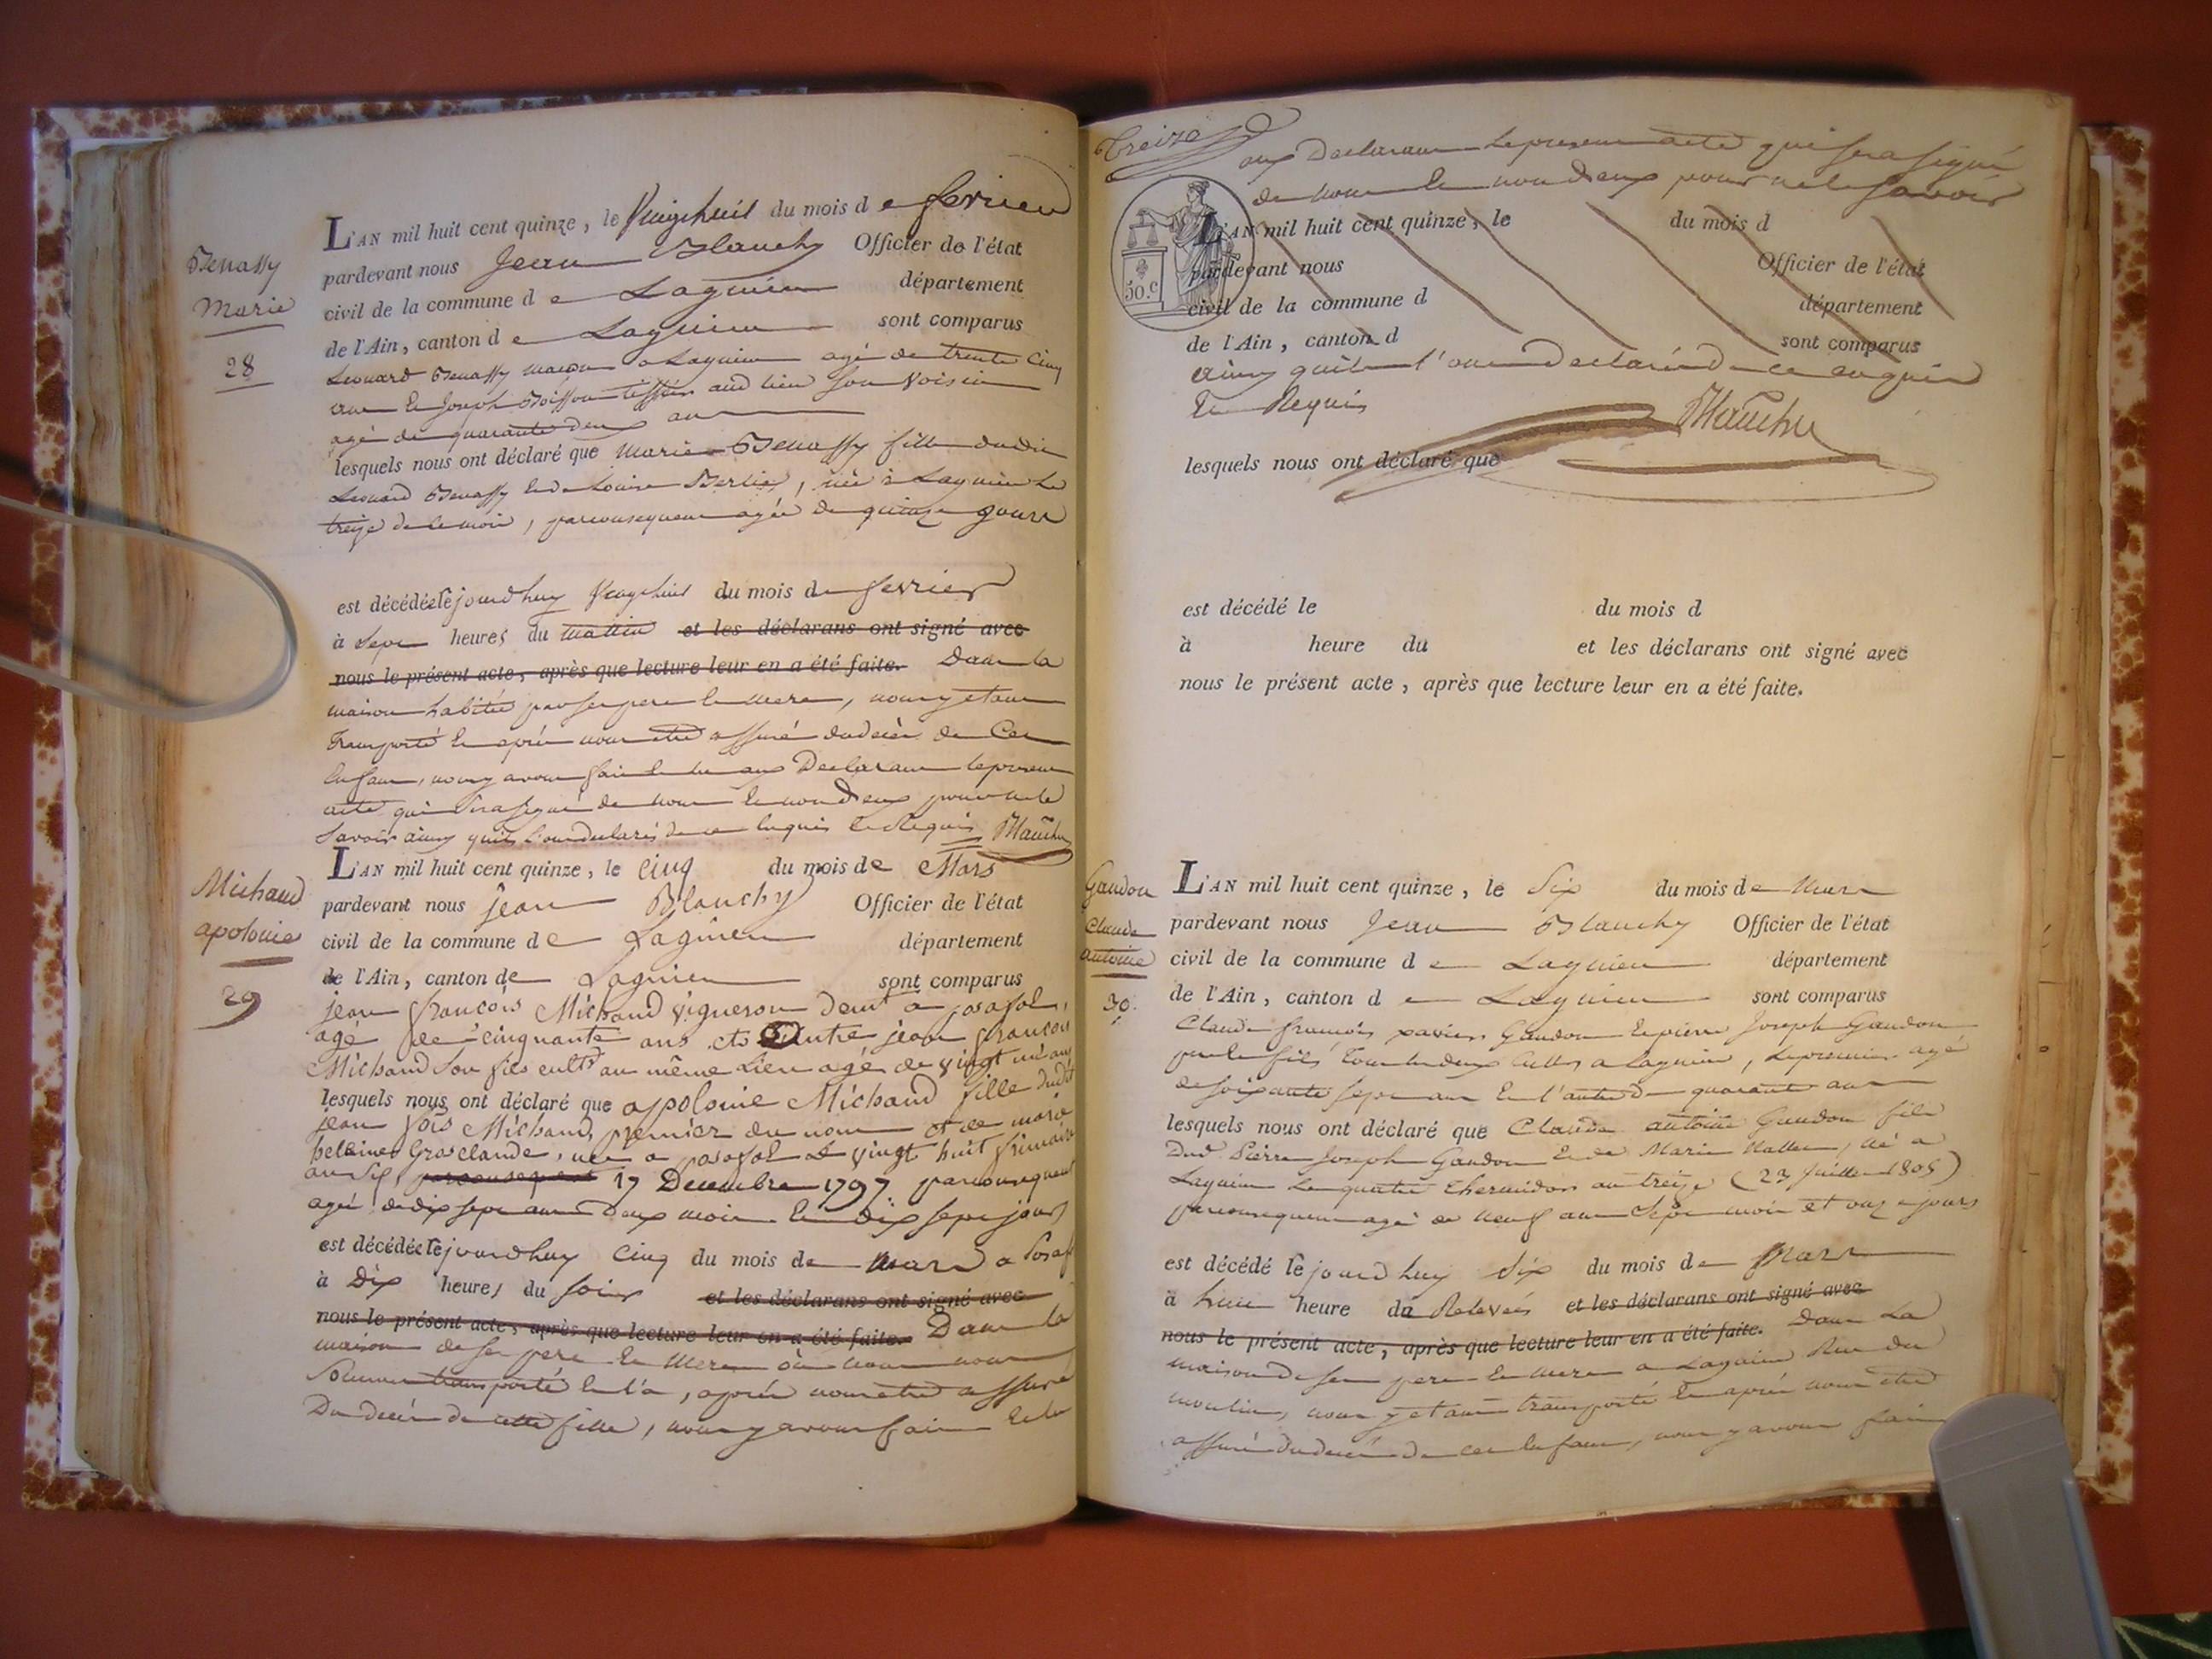 Benassy
Marie
28
L'AN mil huit cent quinze, le Vingt huit du mois de fevrier
pardevant nous Jean Blanchy Officier de l'état
civil de la commune de Lagnieu département
de l'Ain, canton de Lagnieu sont comparus
Leonard Benassy maçon a Lagnieu agé de trente cinq
ans et Joseph Boisson tissier aud lieu son voisin
agé de quarante deux ans
lesquels nous ont déclaré que Marie Benassy fille dudit
Leonard Benassy et de Louise Berlier, née à Lagnieu le
treize de ce mois, par consequent agée de quinze jours
est décédée cejourdhuy Vingt huit du mois de fevrier
à Sept heures du matin et les déclarans ont signé avec
nous le présent acte, après que lecture leur en a été faite. Dans la
maison habitée par ses pere et mere, nous y etant
transporté et après nous etre assuré du décès de Cet
Enfant, nous y avons fait lecture aux Declarans le present
acte qui sera signé de nous et non d'eux pour ne le
Savoir ainsy quils l'ont declaré de ce enquis et Requis Blanchy
Michaud
apolonie
29
L'AN mil huit cent quinze, le cinq du mois de Mars
pardevant nous jean Blanchy Officier de l'état
civil de la commune de Lagnieu département
de l'Ain, canton de Lagnieu sont comparus
jean francois Michaud vigneron demt a posafol,
agé de cinquante ans et autre jean francois
Michaud Son fils cultr au même Lieu agé de vingt un ans
lesquels nous ont déclaré que apolonie Michaud fille dudt
jean fois Michaud, premier du nom et de marie
helaine Grosclaude, née a posafol le vingt huit frimaire
an Six, par consequent 17 Decembre 1797 par consequent
agée de dix sept ans deux mois et dix sept jours
est décédée cejourdhuy Cinq du mois de mars a Posaf
à Dix heures du soir et les déclarans ont signé avec
nous le présent acte, après que lecture leur en a été faite. Dans la
maison de ses pere et mere où nous nous
Sommes transporté et là, après nous etre assuré
Du decès de cette fille, nous y avons fait lecture
Treize
aux Declarans le present acte qui sera signé
de nous et non d'eux pour ne le savoir
50.c
L'AN mil huit cent quinze, le du mois d
pardevant nous Officier de l'état
civil de la commune d département
de l'Ain, canton d sont comparus
ainsy quils l'ont declaré de ce enquis
et Requis Blanchy
lesquels nous ont déclaré que
est décédé le du mois d
à heure du et les déclarans ont signé avec
nous le présent acte, après que lecture leur en a été faite.
Gaudon
Claude
antoine
30.
L'AN mil huit cent quinze, le Six du mois de mars
pardevant nous Jean Blanchy Officier de l'état
civil de la commune de Lagnieu département
de l'Ain, canton de Lagnieu sont comparus
Claude francois xavier Gaudon et pierre Joseph Gaudon
pere et fils tous les deux Cultrs a Lagnieu, le premier agé
de soixante sept ans et l'autre de quarante ans
lesquels nous ont déclaré que Claude antoine Gaudon fils
Dud. Pierre Joseph Gaudon et de Marie Mallet, né a
Lagnieu le quatre thermidor an treize (23 Juillet 1805)
par consequent agé de neuf ans Sept mois et onze jours
est décédé cejourdhuy Six du mois de Mars
à huit heure du Relevée et les déclarans ont signé avec
nous le présent acte, après que lecture leur en a été faite. Dans La
maison de ses pere et mere a Lagnieu Rue du
moulin, nous y etant transporté et après nous etre
assuré du decès de cet Enfant, nous y avons fait